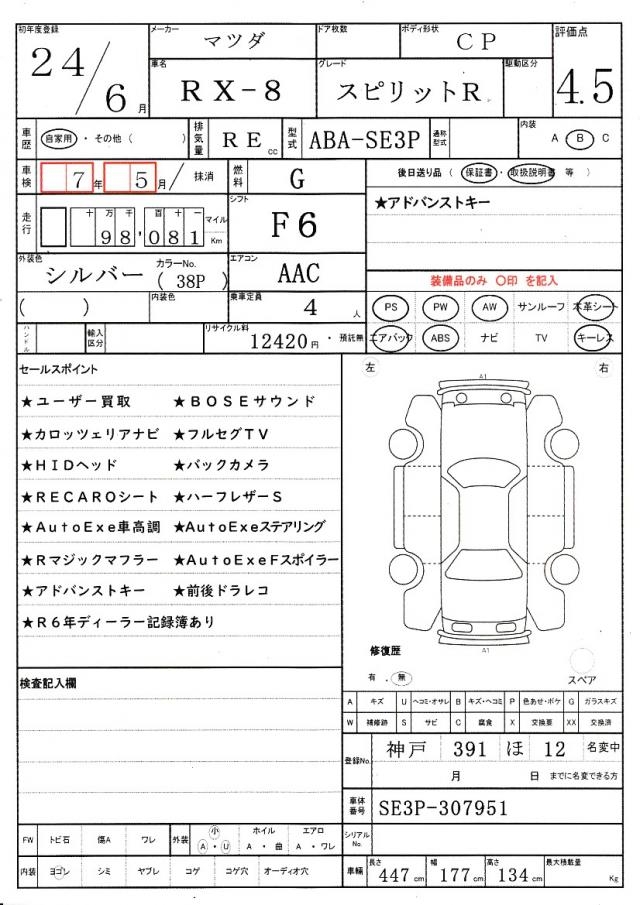 初年度登録 24/6月
メーカー マツダ ドア枚数 ボディ形状 CP
評価点 4.5
車名 RX-8 グレード スピリットR 駆動区分
車歴 自家用・その他( ) 排気量 RE cc 型式 ABA-SE3P 通称型式 内装 A B C
車検 7年 5月/抹消 燃料 G
後日送り品 ( 保証書・取扱説明書 等 )
★アドバンストキー
走行 十万千百十一 98,081 マイル Km シフト F6
外装色 シルバー カラーNo. ( 38P ) エアコン AAC
装備品のみ 〇印 を記入
( ) 内装色 乗車定員 4 人
PS PW AW サンルーフ 本革シート
ハンドル 輸入区分 リサイクル料 12420円・預託無
エアバック ABS ナビ TV キーレス
セールスポイント
★ユーザー買取 ★BOSEサウンド
★カロッツェリアナビ ★フルセグTV
★HIDヘッド ★バックカメラ
★RECAROシート ★ハーフレザーS
★AutoExe車高調 ★AutoExeステアリング
★Rマジックマフラー ★AutoExeFスポイラー
★アドバンストキー ★前後ドラレコ
★R6年ディーラー記録簿あり
左 右
A1
A1
修復歴
有 . 無
スペア
検査記入欄
A キズ U ヘコミ・オサレ B キズ・ヘコミ P 色あせ・ボケ G ガラスキズ
W 補修跡 S サビ C 腐食 X 交換要 XX 交換済
登録No. 神戸 391 ほ 12 名変中
月 日 までに名変できる方
車体番号 SE3P-307951
シリアルNo.
FW トビ石 傷A ワレ 外装 小 A・U ホイル A・曲 エアロ A・ワレ
内装 ヨゴレ シミ ヤブレ コゲ コゲ穴 オーディオ穴
車輌 長さ 447cm 幅 177cm 高さ 134cm 最大積載量 Kg